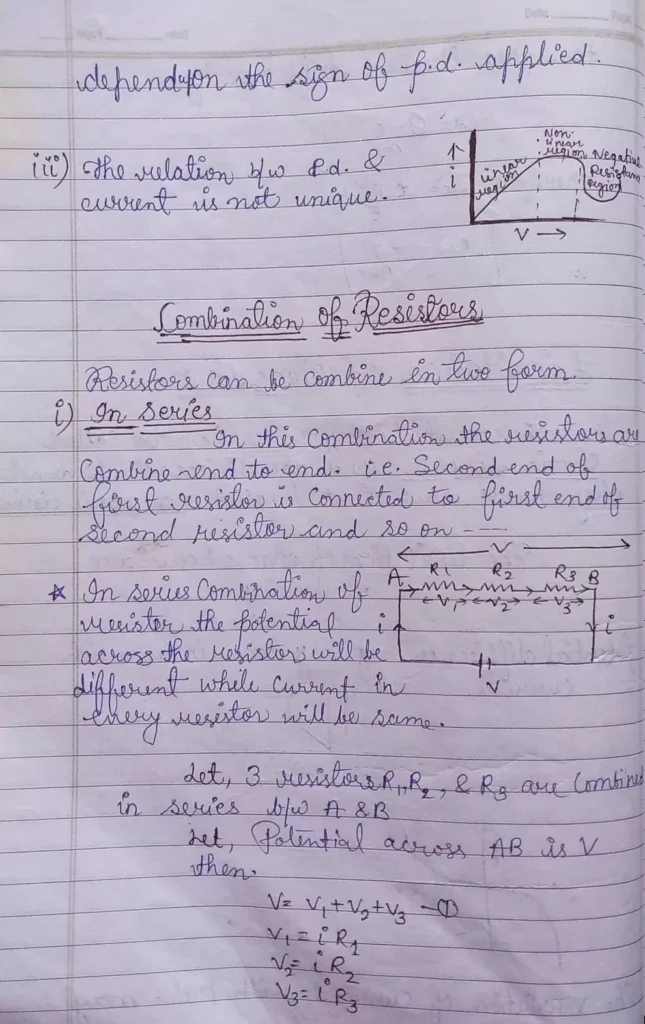 depend upon the sign of p.d. applied.
iii) The relation b/w p.d. &
current is not unique.
↑
i
Linear
region
Non-
linear
region
Negative
Resistance
region
V →
Combination of Resistors
Resistors can be combine in two form.
i) In Series
In this Combination the resistors are
Combine end to end. i.e. Second end of
first resistor is Connected to first end of
second resistor and so on ——
V
A R1 R2 R3 B
V1 V2 V3
i
i
V
☆ In series Combination of
resistor the potential
across the resistors will be
different while Current in
every resistor will be same.
Let, 3 resistors R1, R2, & R3 are Combined
in series b/w A & B
Let, Potential across AB is V
then.
V = V1 + V2 + V3 —①
V1 = i R1
V2 = i R2
V3 = i R3